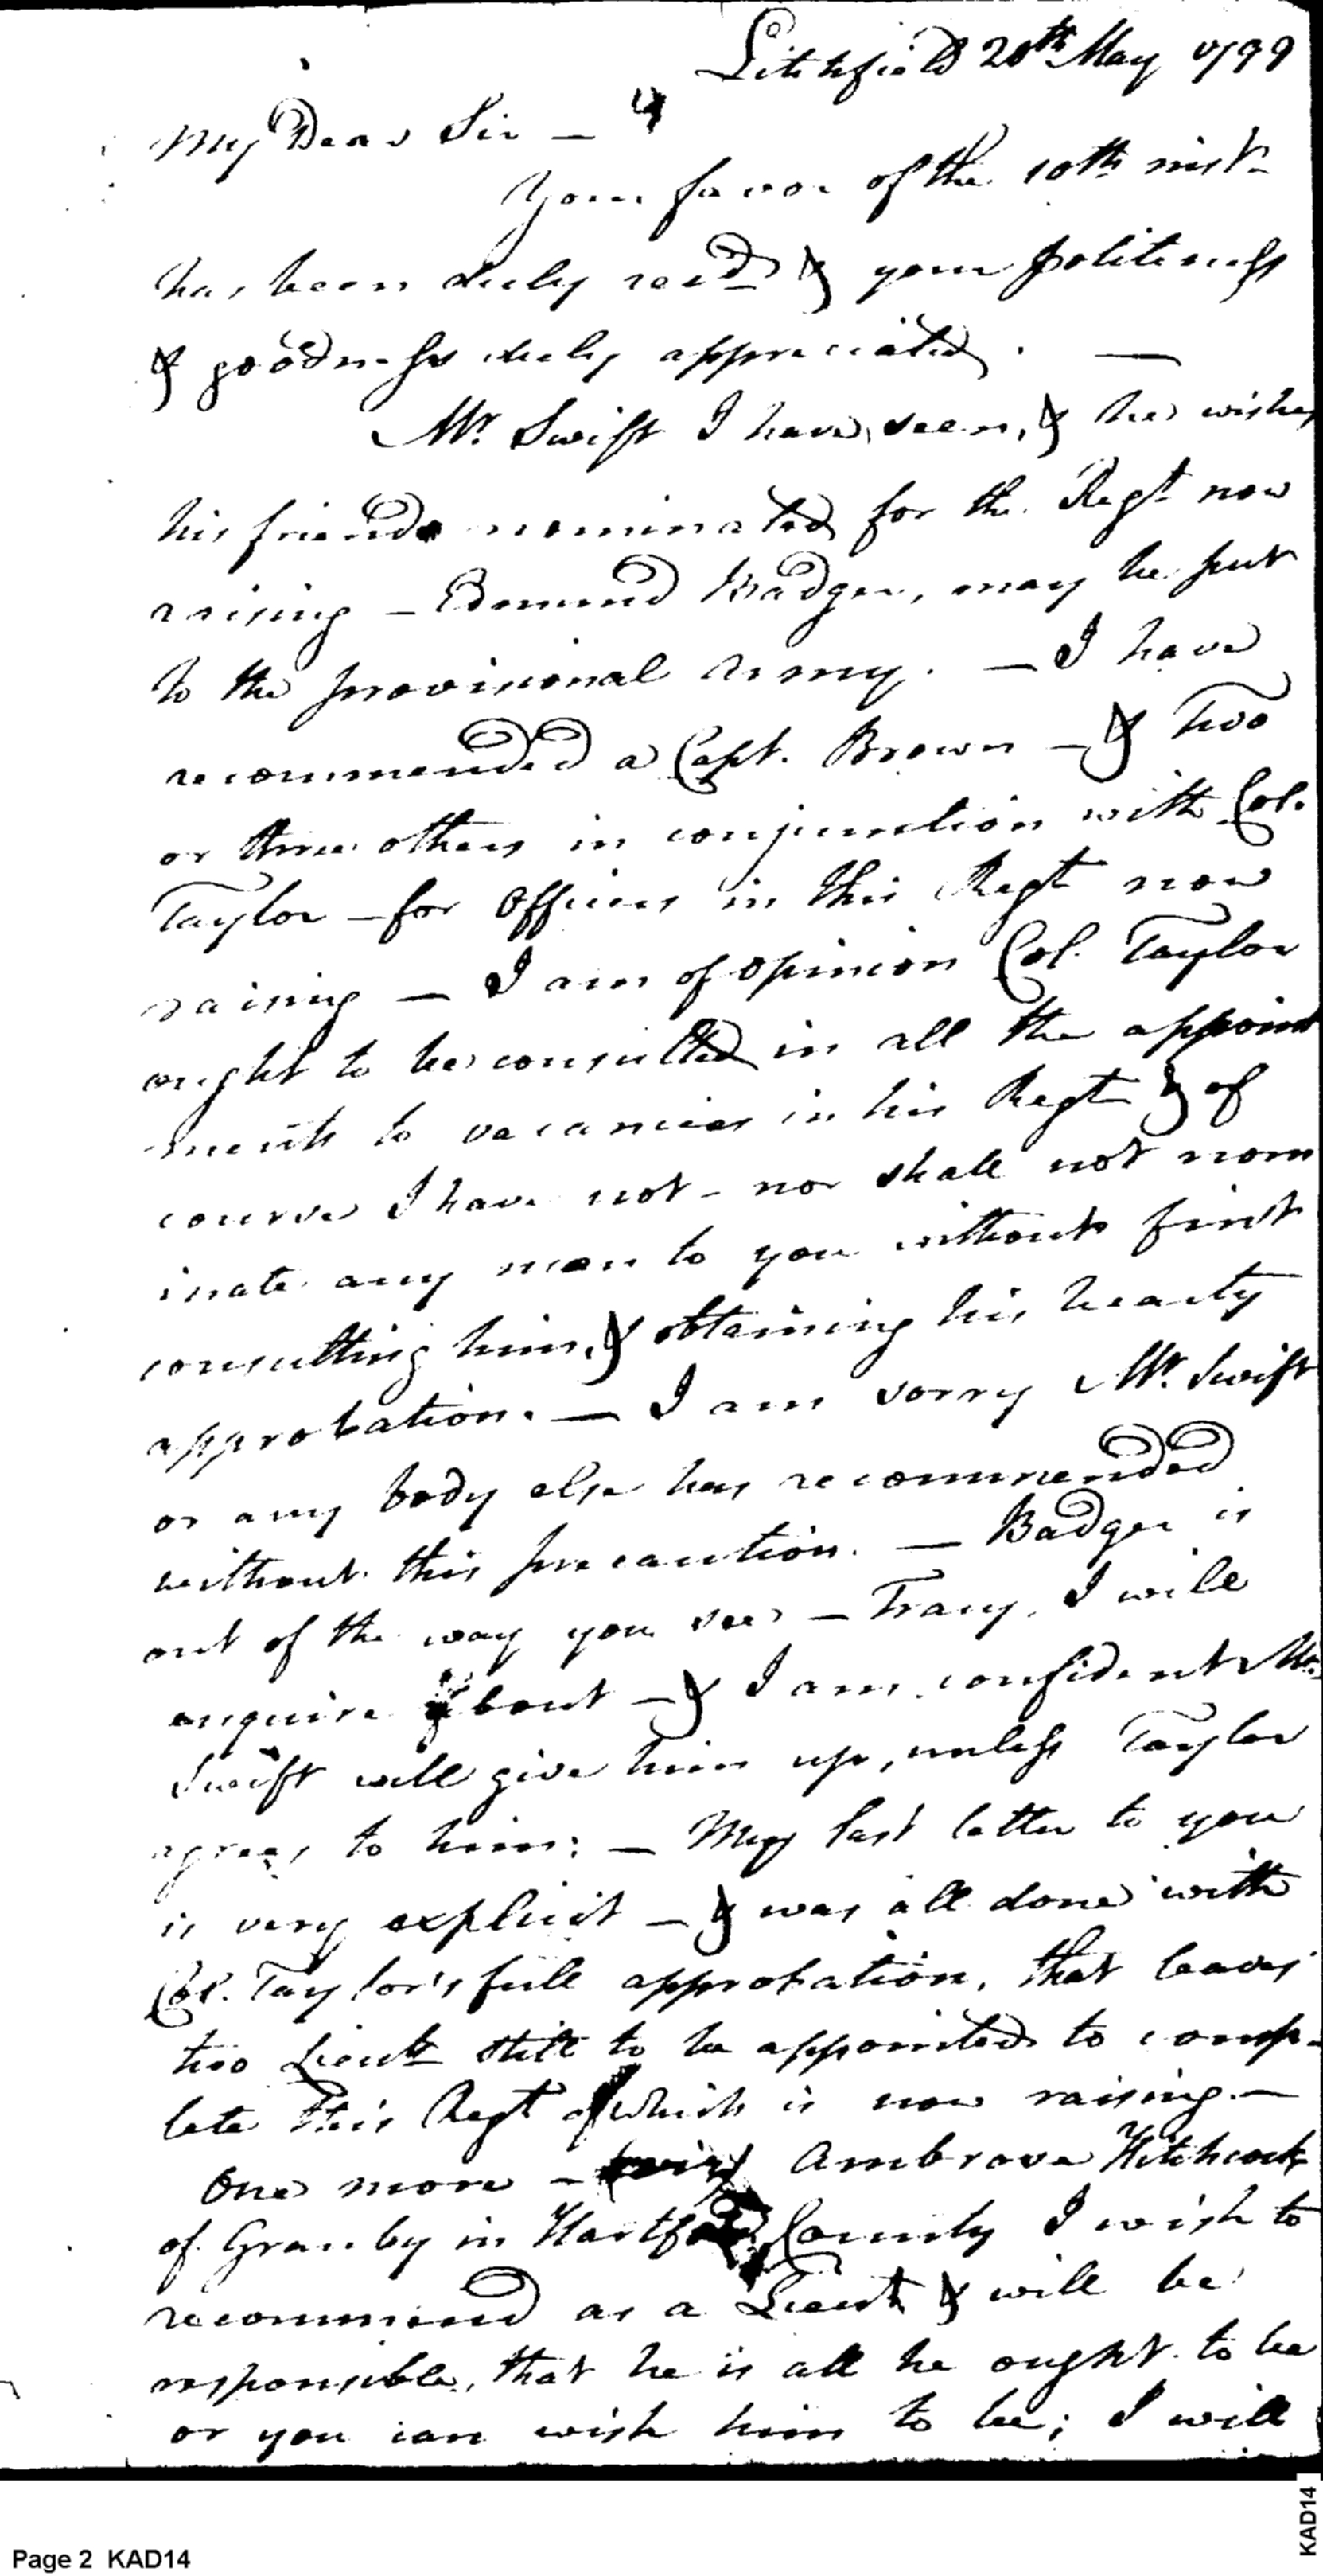 Litchfield 20th May 1799
My Dear Sir —
Your favor of the 10th inst
has been duly recd & your politeness
& goodness duly appreciated. —
Mr. Swift I have seen, & he wishes
his friends nominated for the Regt now
raising — Edmund Badger, may be put
to the provisional Army. — I have
recommended a Capt. Brown — & two
or three others in conjunction with Col.
Taylor — for officers in this Regt now
raising — I am of opinion Col. Taylor
ought to be consulted in all the appoint
ments to vacancies in his Regt & of
course I have not — nor shall not nom
inate any man to you without first
consulting him, & obtaining his hearty
approbation. — I am sorry Mr. Swift
or any body else has recommended
without this precaution. — Badger is
out of the way you see — Tracy, I will
enquire about — & I am confident Mr.
Swift will give him up, unless Taylor
agrees to him; — My last letter to you
is very explicit — & was all done with
Col. Taylor's full approbation, that leaves
two Lieuts still to be appointed to comp-
lete this Regt which is now raising. —
One more — Ambrose Hitchcock
of Granby in Hartford County I wish to
recommend as a Lieut & will be
responsible, that he is all he ought to be
or you can wish him to be; I will
KAD14
Page 2 KAD14